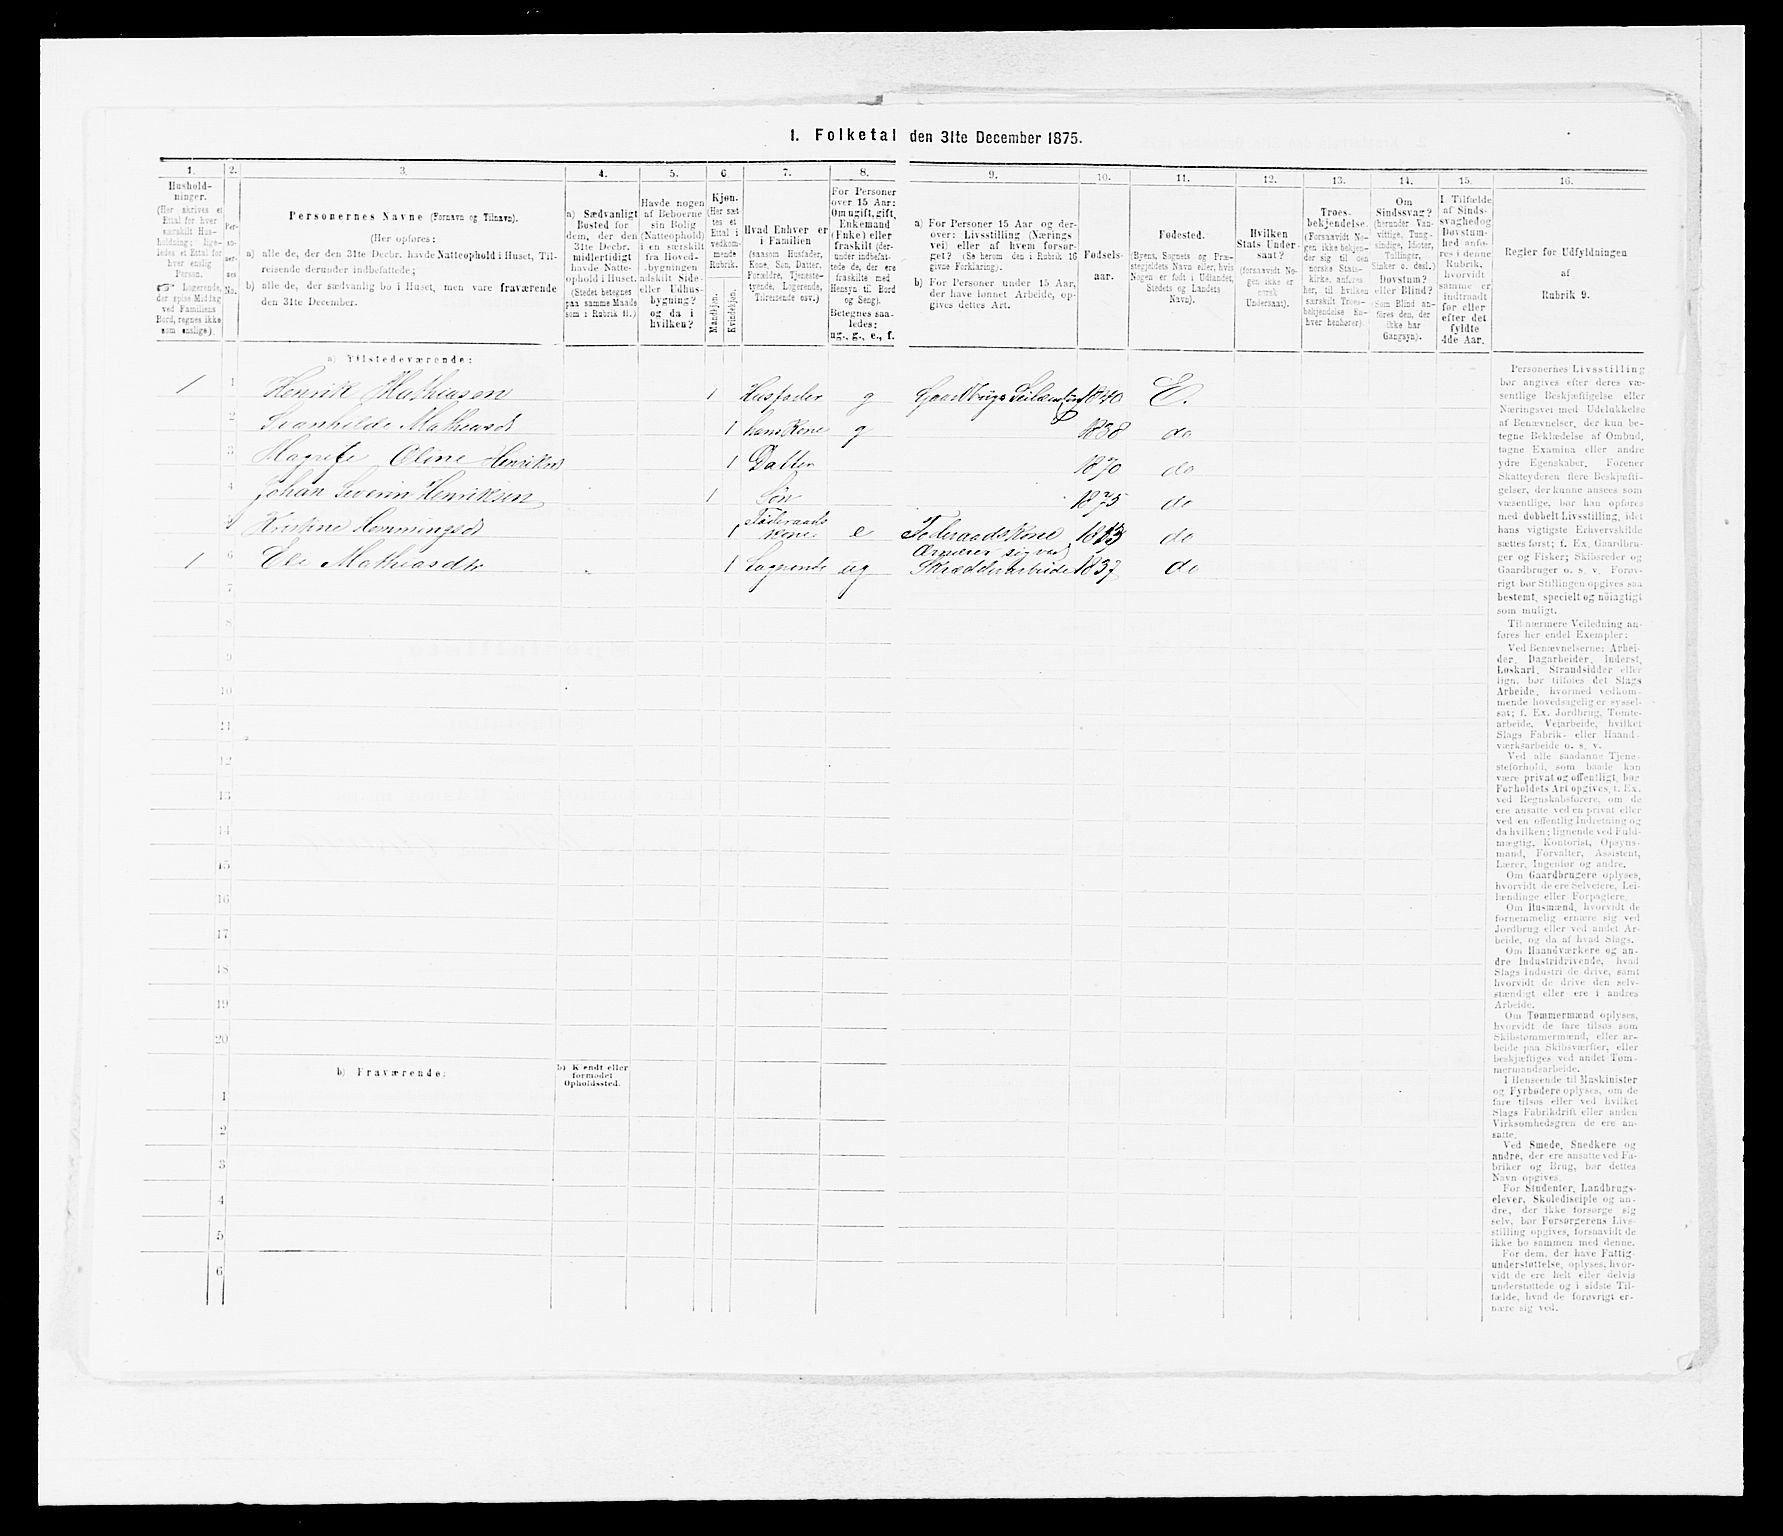 1. Folketal den 31te December 1875.
1.
2.
3.
4.
5.
6.
7.
8.
9.
10.
11.
12.
13.
14.
15.
16.
Hushold-
ninger.
(Her skrives et
Ettal for hver
særskilt Hus-
holdning; lige-
ledes et Ettal for
hver enslig
Person.
☞ Logerende,
der spise Middag
ved Familiens
Bord, regnes ikke
som enslige).
Per-
so-
ner-
nes
No.
Personernes Navne (Fornavn og Tilnavn).
(Her opføres:
a) alle de, der den 31te Decbr. havde Natteophold i Huset, Til-
reisende derunder indbefattede;
b) alle de, der sædvanlig bo i Huset, men vare fraværende
den 31te December.
a) Sædvanligt
Bosted for
dem, der den
31te Decbr.
midlertidigt
havde Natte-
ophold i Huset.
(Stedet betegnes
paa samme Maade
som i Rubrik 11.)
Havde nogen
af Beboerne
sin Bolig
(Natteophold)
i en særskilt
fra Hoved-
bygningen
adskilt Side-
eller Udhus-
bygning?
og da i
hvilken?
Kjøn.
(Her sæt
tes et
Ettal i
vedkom-
mende
Rubrik.
Mandkjøn.
Kvindekjøn.
Hvad Enhver er
i Familien
(saasom Husfader,
Kone, Søn, Datter,
Forældre, Tjeneste-
tyende, Logerende,
Tilreisende osv.)
For Personer
over 15 Aar:
Om ugift, gift,
Enkemand
(Enke) eller
fraskilt (der-
under indbefat-
tede de, der ere
fraskilte med
Hensyn til Bord
og Seng).
Betegnes saa-
ledes:
ug., g., e., f.
a) For Personer 15 Aar og der-
over: Livsstilling (Nærings
vei) eller af hvem forsør-
get? (Se herom den i Rubrik 16
givne Forklaring).
b) For Personer under 15 Aar,
der have lønnet Arbeide, op-
gives dettes Art.
Fødsels-
aar.
Fødested.
(Byens, Sognets og Præ-
stegjeldets Navn eller, hvis
Nogen er født i Udlandet,
Stedets og Landets
Navn).
Hvilken
Stats Under-
saat?
(forsaavidt No-
gen ikke er
norsk
Undersaat).
Troes-
bekjendelse.
(Forsaavidt No-
gen ikke bekjen-
der sig til den
norske Stats-
kirke, anføres
her, til hvilken
særskilt Troes-
bekjendelse En-
hver henhører).
Om
Sindssvag?
(herunder Van-
vittige, Tung-
sindige, Idioter,
Tullinger,
Sinker o. desl.)
Døvstum?
eller Blind?
(Som Blind an-
føres den, der
ikke har
Gangsyn).
I Tilfælde
af Sinds-
svaghed og
Døvstum-
hed anfø-
res i denne
Rubrik,
hvorvidt
samme er
indtraadt
før eller
efter det
fyldte
4de Aar.
Regler for Udfyldningen
af
Rubrik 9.
a) Tilstedeværende:
1 1 Henrik Mathiasen 1 Husfader g Gaardbruger Leilænding 1840 E.
2 Svanhilde Mathiasd 1 hans Kone g 1838 do
3 Magrete Oline Henriksd 1 Datter 1870 do
4 Johan Severin Henriksen 1 Søn 1875 do
5 Kristine Hemmingsd 1 Føderaads Kone e Føderaadskone 1813 do
1 6 Ele Mathiasdtr 1 Logerende ug Ernærer sig ved Skrædderarbeide 1837 do
7
8
9
10
11
12
13
14
15
16
17
18
19
20
b) Fraværende:
b) Kjendt eller
formodet
Opholdssted.
1
2
3
4
5
6
Personernes Livsstilling
bør angives efter deres væ-
sentlige Beskjæftigelse eller
Næringsvei med Udelukkelse
af Benævnelser, der kun be-
tegne Beklædelse af Ombud,
tagne Examina eller andre
ydre Egenskaber. Forener
Skatteyderen flere Beskjæfti-
gelser, der kunne ansees som
væsentlige, bør han opføres
med dobbelt Livsstilling, idet
hans vigtigste Erhvervskilde
sættes først; f. Ex. Gaardbru-
ger og Fisker; Skibsreder og
Gaardbruger o. s. v. Forøv-
rigt bør Stillingen opgives saa
bestemt, specielt og nöiagtigt
som muligt.
Til nærmere Veiledning an-
føres her endel Exempler:
Ved Benævnelserne: Arbei-
der, Dagarbeider, Inderst,
Løskarl, Strandsidder eller
lign. bør tilføies det Slags
Arbeide, hvormed vedkom-
mende hovedsagelig er syssel-
sat; f. Ex. Jordbrug, Tomte-
arbeide, Veiarbeide, hvilket
Slags Fabrik- eller Haand-
værksarbeide o. s. v.
Ved alle saadanne Tjene-
steforhold, som baade kan
være privat og offentligt, bør
Forholdets Art opgives, f. Ex.
ved Regnskabsførere, om de
ere ansatte ved en privat eller
ved en offentlig Indretning og
da hvilken; lignende ved Fuld-
mægtig, Kontorist, Opsyns-
mand, Forvalter, Assistent,
Lærer, Ingeniør og andre.
Om Gaardbrugere oplyses,
hvorvidt de ere Selveiere, Lei-
lændinge eller Forpagtere.
Om Husmænd, hvorvidt de
fornemmelig ernære sig ved
Jordbrug eller ved andet Ar-
beide, og da af hvad Slags.
Om Haandværkere og an-
dre Industridrivende, hvad
Slags Industri de drive, samt
hvorvidt de drive den selv-
stændigt eller ere i andres
Arbeide.
Om Tømmermænd oplyses,
hvorvidt de fare tilsøs som
Skibstømmermænd, eller ar-
beide paa Skibsværfter, eller
beskjæftiges ved andet Tøm-
mermandsarbeide.
I Henseende til Maskinister
og Fyrbødere oplyses, om de
fare tilsøs eller ved hvilket
Slags Fabrikdrift eller anden
Virksomhedsgren de ere an-
satte.
Ved Smede, Snedkere og
andre, der ere ansatte ved Fa-
briker og Brug, bør dettes
Navn opgives.
For Studenter, Landbrugs-
elever, Skoledisciple og an-
dre, der ikke forsørge sig
selv, bør Forsørgerens Livs-
stilling opgives, forsaavidt de
ikke bo sammen med denne.
For dem, der have Fattig-
understøttelse, oplyses, hvor-
vidt de ere helt eller delvis
understøttede og i sidste Til-
fælde, hvad de forøvrigt er-
nære sig ved.